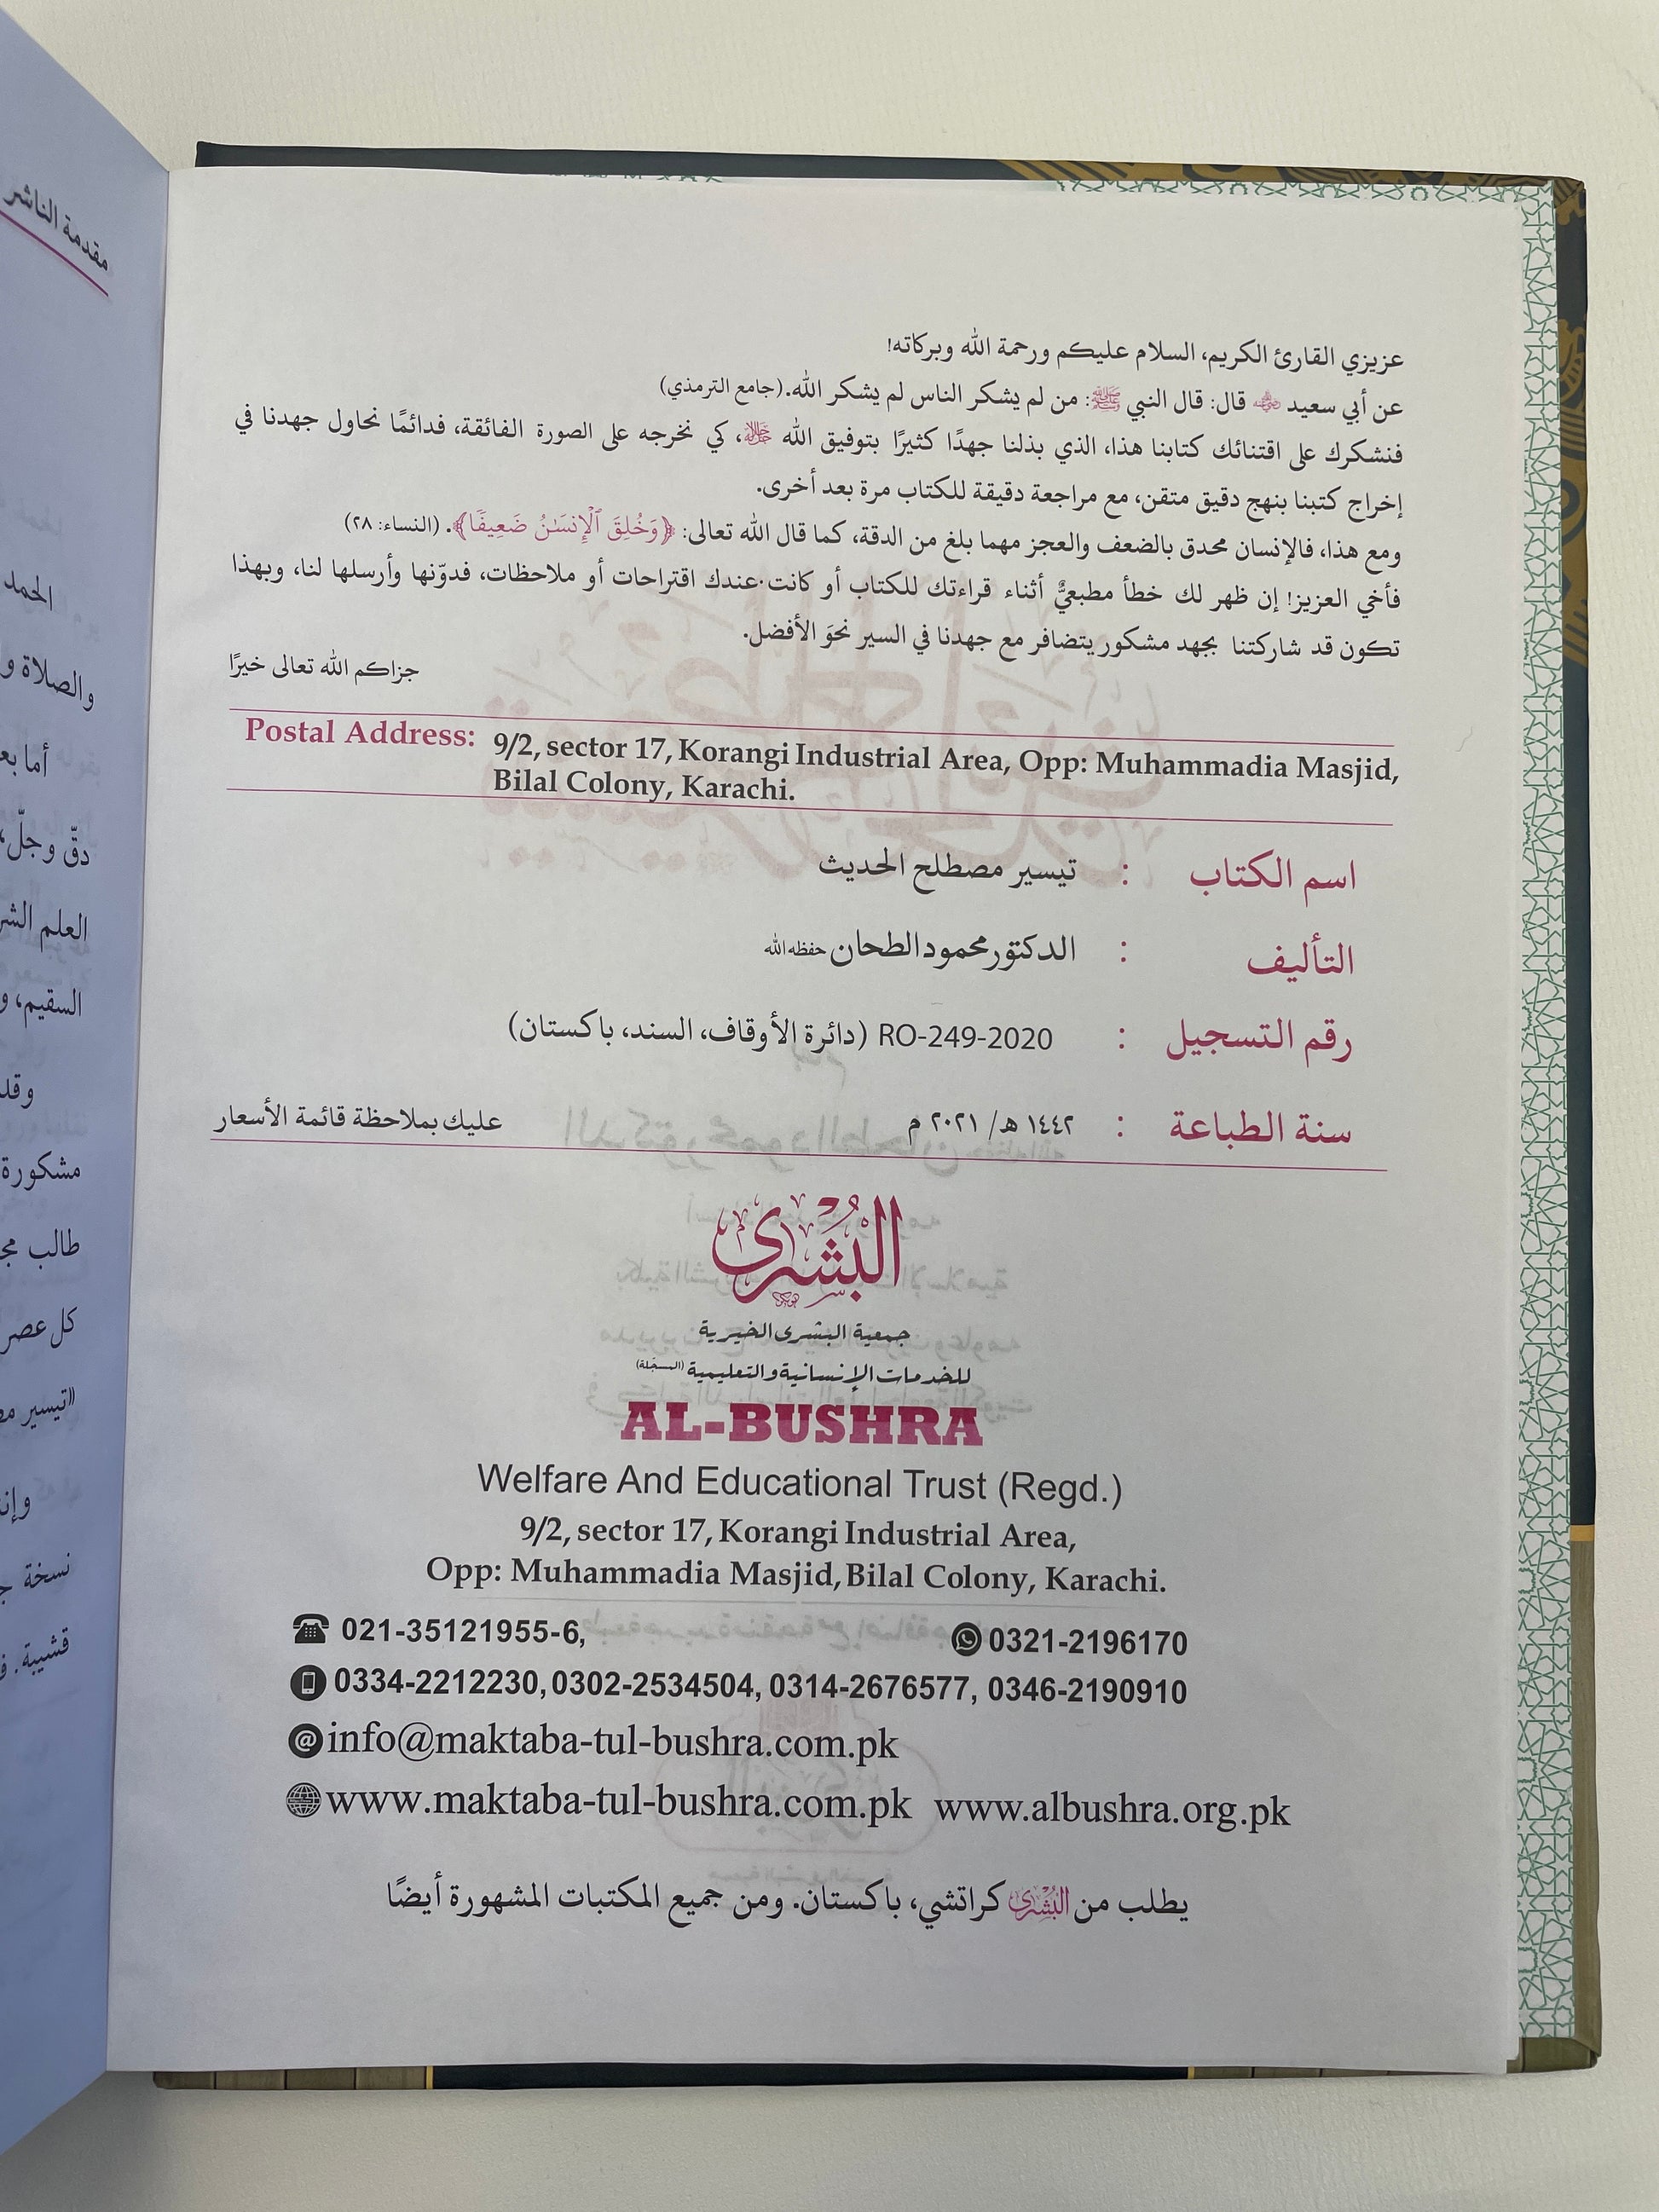 عزيزي القارئ الكريم، السلام عليكم ورحمة الله وبركاته!
عن أبي سعيد رضي الله عنه قال: قال النبي ﷺ: من لم يشكر الناس لم يشكر الله. (جامع الترمذي)
فنشكرك على اقتنائك كتابنا هذا، الذي بذلنا جهدًا كثيرًا بتوفيق الله ﷻ، كي نخرجه على الصورة الفائقة، فدائمًا نحاول جهدنا في
إخراج كتبنا بنهج دقيق متقن، مع مراجعة دقيقة للكتاب مرة بعد أخرى.
ومع هذا، فالإنسان محدق بالضعف والعجز مهما بلغ من الدقة، كما قال الله تعالى: ﴿وَخُلِقَ ٱلْإِنسَٰنُ ضَعِيفًا﴾. (النساء: ٢٨)
فأخي العزيز! إن ظهر لك خطأ مطبعيٌّ أثناء قراءتك للكتاب أو كانت عندك اقتراحات أو ملاحظات، فدوّنها وأرسلها لنا، وبهذا
تكون قد شاركتنا بجهد مشكور يتضافر مع جهدنا في السير نحوَ الأفضل.
جزاكم الله تعالى خيرًا
Postal Address: 9/2, sector 17, Korangi Industrial Area, Opp: Muhammadia Masjid,
Bilal Colony, Karachi.
اسم الكتاب : تيسير مصطلح الحديث
التأليف : الدكتور محمود الطحان حفظه الله
رقم التسجيل : RO-249-2020 (دائرة الأوقاف، السند، باكستان)
سنة الطباعة : ١٤٤٢ هـ/ ٢٠٢١ م عليك بملاحظة قائمة الأسعار
البُشْرى
جمعية البشرى الخيرية
للخدمات الإنسانية والتعليمية (المسجّلة)
AL-BUSHRA
Welfare And Educational Trust (Regd.)
9/2, sector 17, Korangi Industrial Area,
Opp: Muhammadia Masjid, Bilal Colony, Karachi.
021-35121955-6, 0321-2196170
0334-2212230, 0302-2534504, 0314-2676577, 0346-2190910
info@maktaba-tul-bushra.com.pk
www.maktaba-tul-bushra.com.pk www.albushra.org.pk
يطلب من البُشْرى كراتشي، باكستان. ومن جميع المكتبات المشهورة أيضًا
مقدمة الناشر
الحمد
والصلاة
دقّ وجلّ،
العلم
السقيم،
وقد
مشكورة
طالب
كل عصر
«تيسير
نسخة
قشيبة.